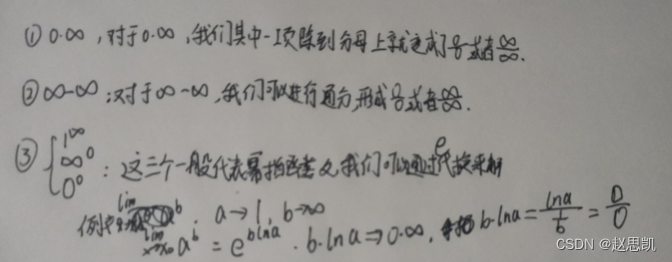 ① 0·∞,对于0·∞,我们其中一项除到分母上就变成了0/0或者∞/∞.
② ∞-∞:对于∞-∞,我们可以进行通分,形成0/0或者∞/∞.
③ { 1^∞ ∞^0 0^0 :这三个一般代表幂指函数,我们可以通过e代换来解
例如 lim a^b . a→1, b→∞
lim x→x₀ a^b = e^{b ln a} . b·lna→0·∞, b·lna = lna/(1/b) = 0/0
CSDN @赵思凯